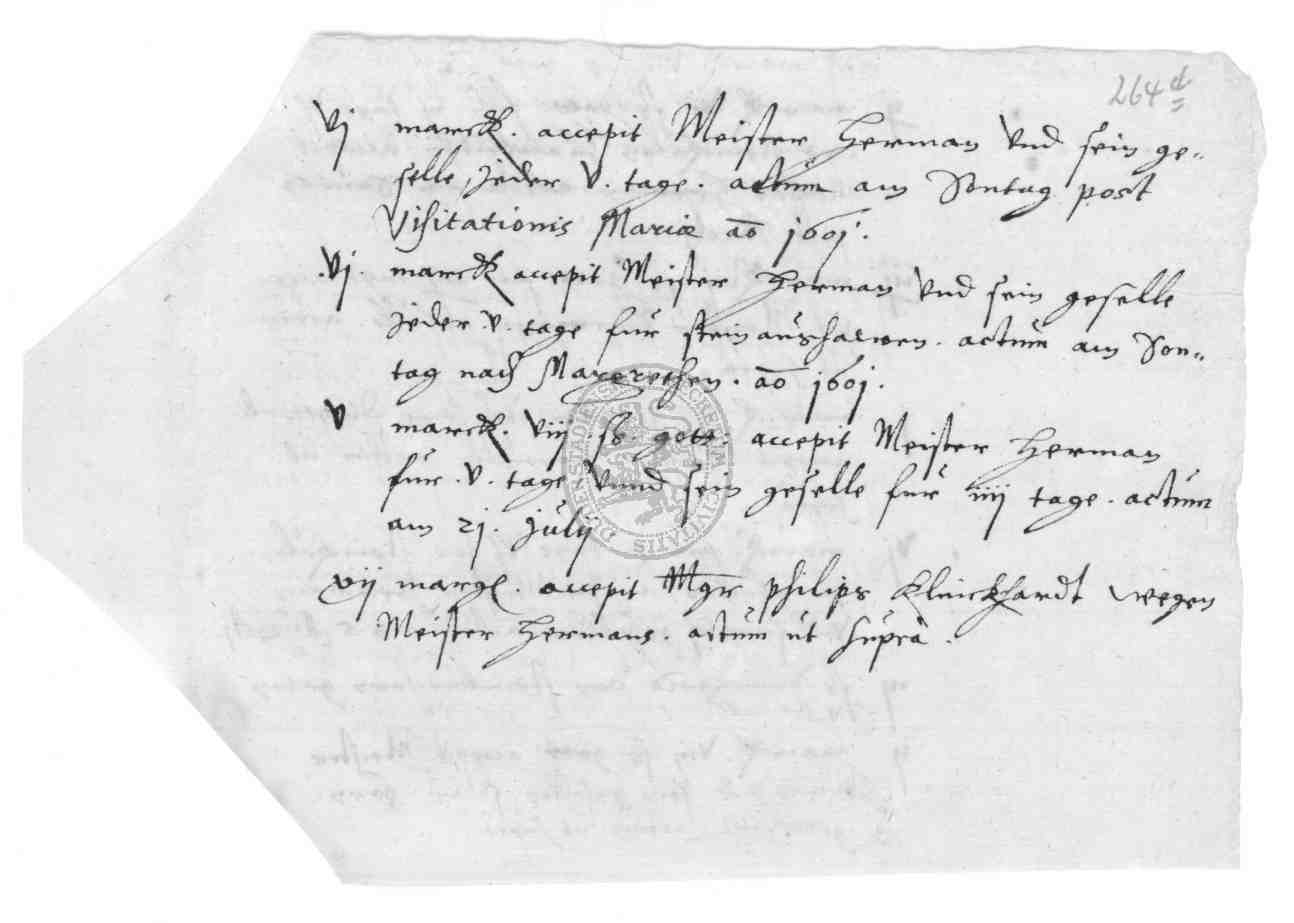 264 d
vj marck. accepit Meister Herman vnd sein ge-
selle, jeder v. tage. actum am Sontag post
Visitationis Mariæ aō 1601.
.vj. marck accepit Meister Herman vnd sein geselle
jeder .v. tage fur stein aushawen. actum am Son-
tag nach Margrethen. aō 1601.
v marck. viij .ß. gott. accepit Meister Herman
fur .v. tage vnnd sein geselle fur iiij tage. actum
am 21. Julij
vij marck. accepit Mgr Philips Klinckhardt wegen
Meister Hermans. actum ut supra.